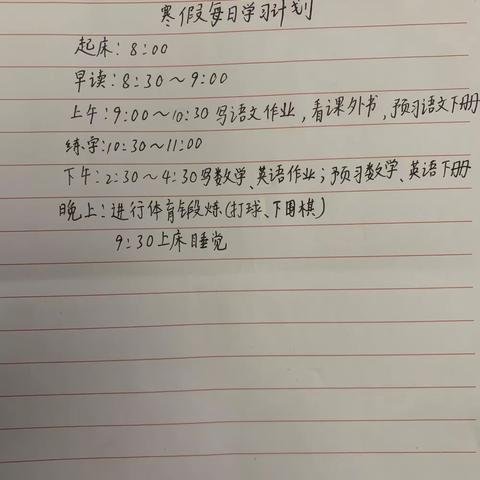 寒假每日学习计划
起床：8：00
早读：8：30～9：00
上午：9：00～10：30写语文作业，看课外书，预习语文下册
练字：10：30～11：00
下午：2：30～4：30写数学、英语作业；预习数学、英语下册
晚上：进行体育锻炼（打球、下围棋）
9：30上床睡觉